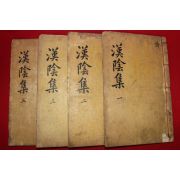 漢陰集 一
漢陰集 二
漢陰集 三
漢陰集